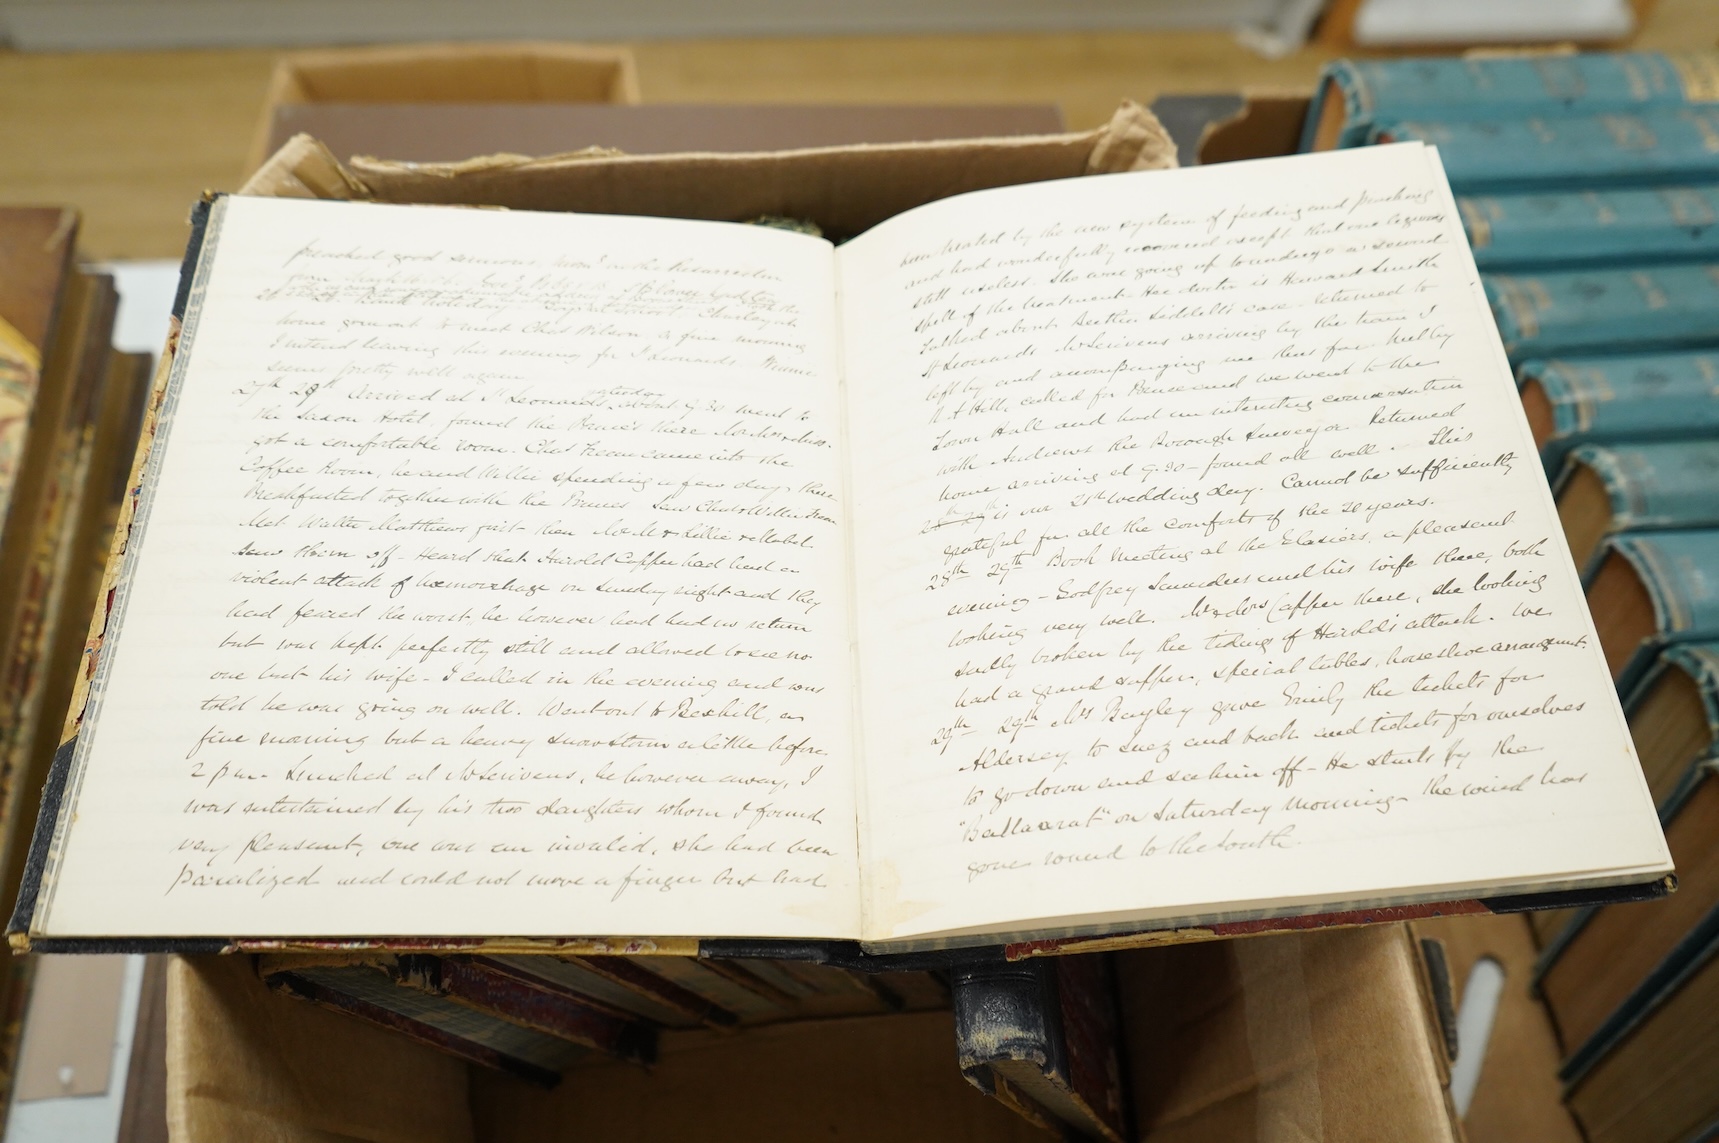 preached good sermons, morn.g on the Resurrection
home gone out to meet Chas Wilson a fine morning
I intend leaving this evening for St Leonards. Winnie
seems pretty well again
27th 28th Arrived at St Leonards yesterday about 9.30 went to
the Saxon Hotel, found the Prince's there
got a comfortable room. Chas came into the
Coffee Room, he and Willie spending a few days there
Breakfasted together with the Saw Chas & Willie
Met Walter Matthews first then & Lillie & Mabel
saw them off - Heard that Harold Capper had had a
violent attack of hæmorrhage on Sunday night and they
had feared the worst, he however had had no return
but was kept perfectly still and allowed to see no
one but his wife - I called in the evening and was
told he was going on well. Went out to Bexhill, a
fine morning but a heavy snow storm a little before
2 p.m. - Lunched at McScrivens, he however away, I
was entertained by his two daughters whom I found
very pleasant, one was an invalid, she had been
paralized and could not move a finger but had
been treated by the new system of feeding and punching
and had wonderfully recovered except that one leg was
still useless - She was going up to undergo a second
spell of the treatment - Her doctor is Howard Smith
Talked about Liddell's case - Returned to
St Leonards McScrivens arriving by the train I
left by and accompanying me thus far. Melby
Hill, called for and we went to the
Town Hall and had an interesting conversation
with Andrews the Borough Surveyor Returned
home arriving at 9.30 - found all well. This
28th 29th is our 21st wedding day. Cannot be sufficiently
grateful for all the comforts of the 20 years.
28th 29th Book Meeting at the Glasiers, a pleasant
evening - Godfrey Saunders and his wife there, both
looking very well. Mrs Capper there, she looking
sadly broken by the tidings of Harold's attack. We
had a grand supper, special tables, horseshoe arrangmt.
29th 29th Mrs Bayley gave Emily the tickets for
Aldersey to Suez and back and tickets for ourselves
to go down and see him off - He starts by the
"Ballaarat" on Saturday morning - The wind has
gone round to the South.